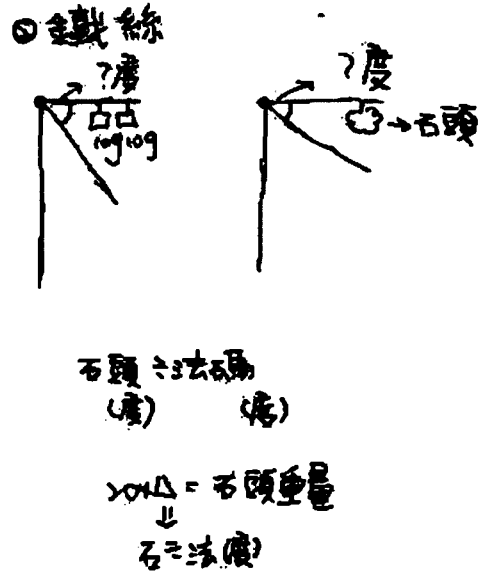 ② 鐵絲
?度
?度
10g 10g
→石頭
石頭÷法碼
(度) (度)
20×△=石頭重量
⇓
石÷法(度)